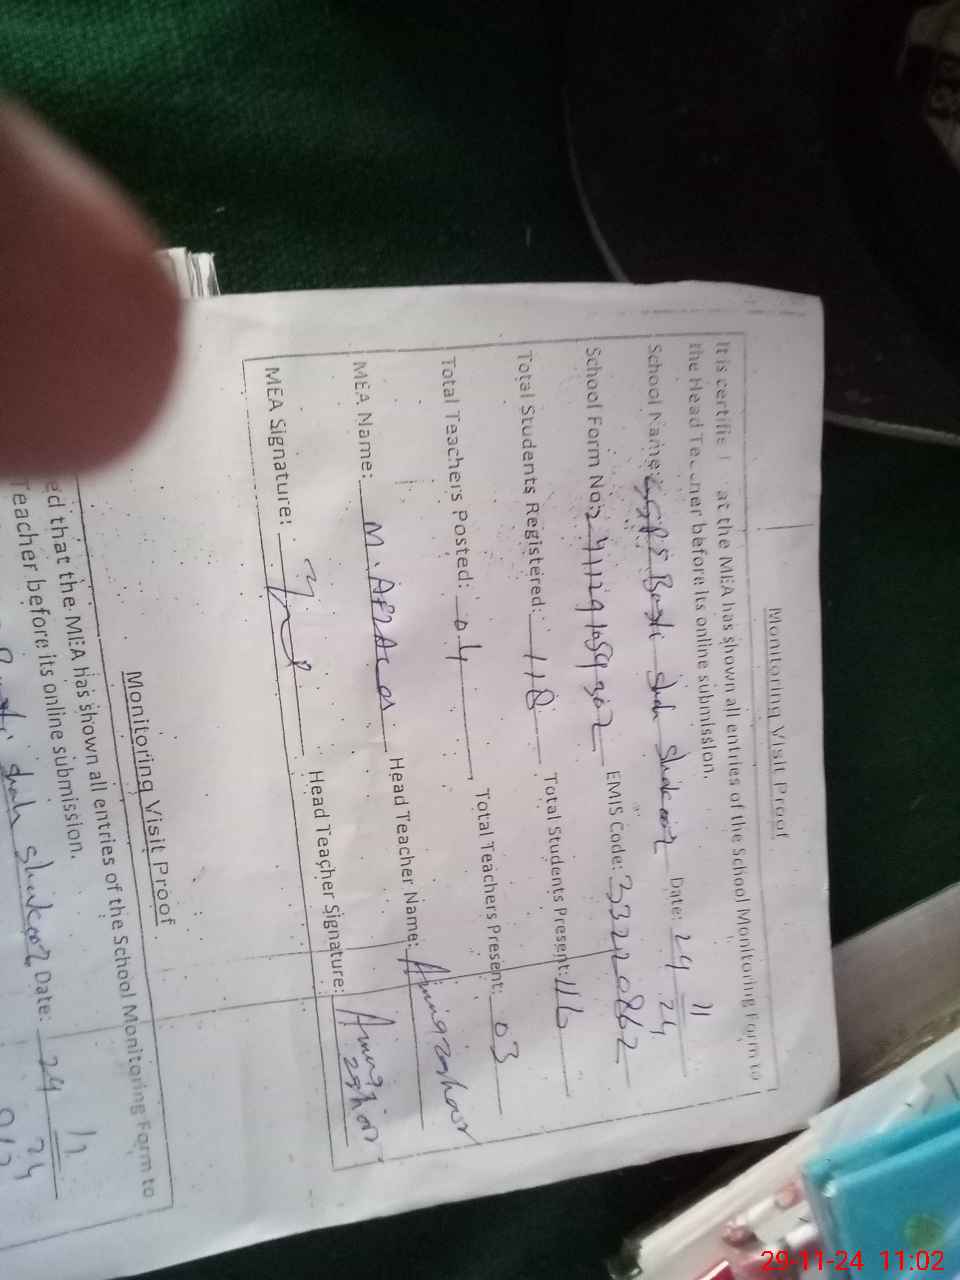 Monitoring Visit Proof
It is certifie at the MEA has shown all entries of the School Monitoring Form to
the Head Te ner before its online submission.
School Name: GGPS Basti Shah Shakoor Date: 29 11 24
School Form No: EMIS Code: 33220862
Total Students Registered: 118 Total Students Present: 116
Total Teachers Posted: 04 Total Teachers Present: 03
MEA Name: M. Head Teacher Name:
MEA Signature: Head Teacher Signature:
Monitoring Visit Proof
ed that the MEA has shown all entries of the School Monitoring Form to
Teacher before its online submission.
Basti Shah Shakoor Date: 29 11 24
29-11-24 11:02